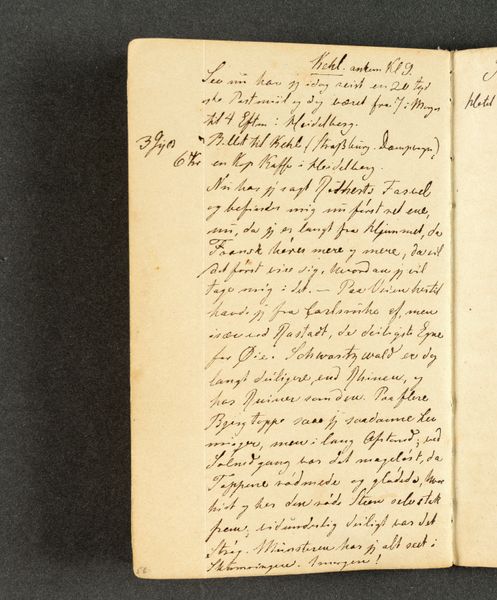 Kehl. ankom Kl 9.
See nu har jeg idag reist en 20 tyd
ske Postmiil og dog været fra 7 i Morges
til 4 Efterm: i Heidelberg.
Billet til Kehl (Straßburg. Dampvogn)
6 Kr en Kop Kaffe i Heidelberg.
Nu har jeg sagt Farvel
og befinder mig nu først ret ene,
nu, da jeg er langt fra Hjemmet, da
Fransk høres mere og mere, da vil
det først vise sig, hvordan jeg vil
tage mig i det. — Paa Veien hertil
havde jeg fra Carlsruhe af, men
især ved Rastadt, de deiligste Egne
for Øie. Schwartzwald er dog
langt deiligere end Rhinen, og
har Ruiner som den. Paa flere
Bjergtoppe saae jeg saadanne Lev
ninger, men i lang Afstand; ved
Solnedgang var det mageløst, da
Toppene rødmede og glødede, hvor
hist og her den røde Steen selv stak
frem, vidunderlig deiligt var det
Strøg. Münsteren har jeg alt seet i
Skumringen. Imorgen!
Hotel